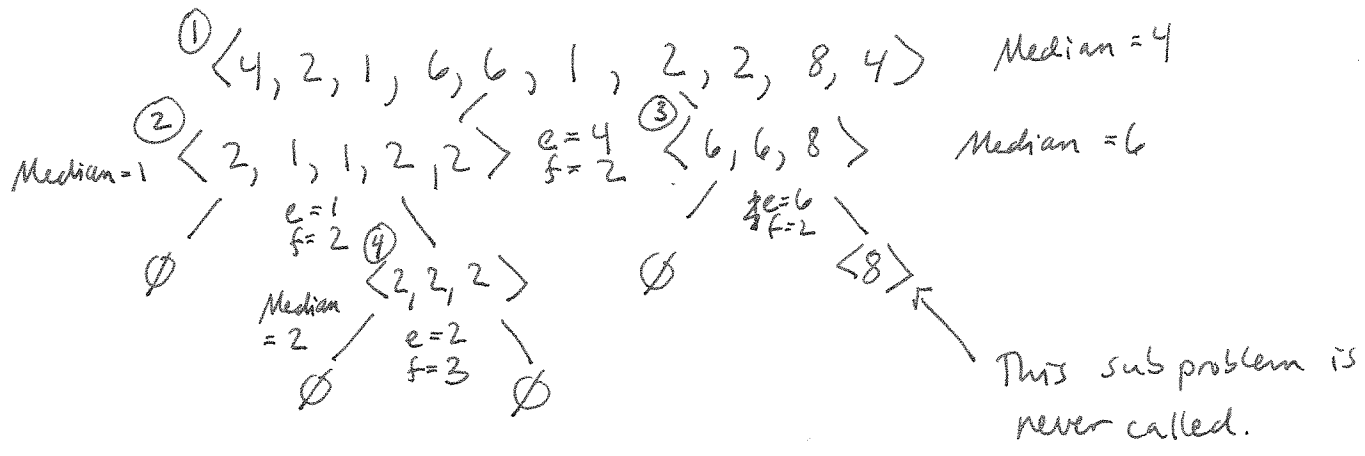 ① <4, 2, 1, 6, 6, 1, 2, 2, 8, 4> Median = 4
② ③
Median = 1 <2, 1, 1, 2, 2> e = 4 <6, 6, 8> Median = 6
f = 2
e = 1 e = 6
f = 2 ④ f = 2
∅ <2, 2, 2> ∅ <8>
Median
= 2 e = 2
f = 3
∅ ∅
This subproblem is
never called.